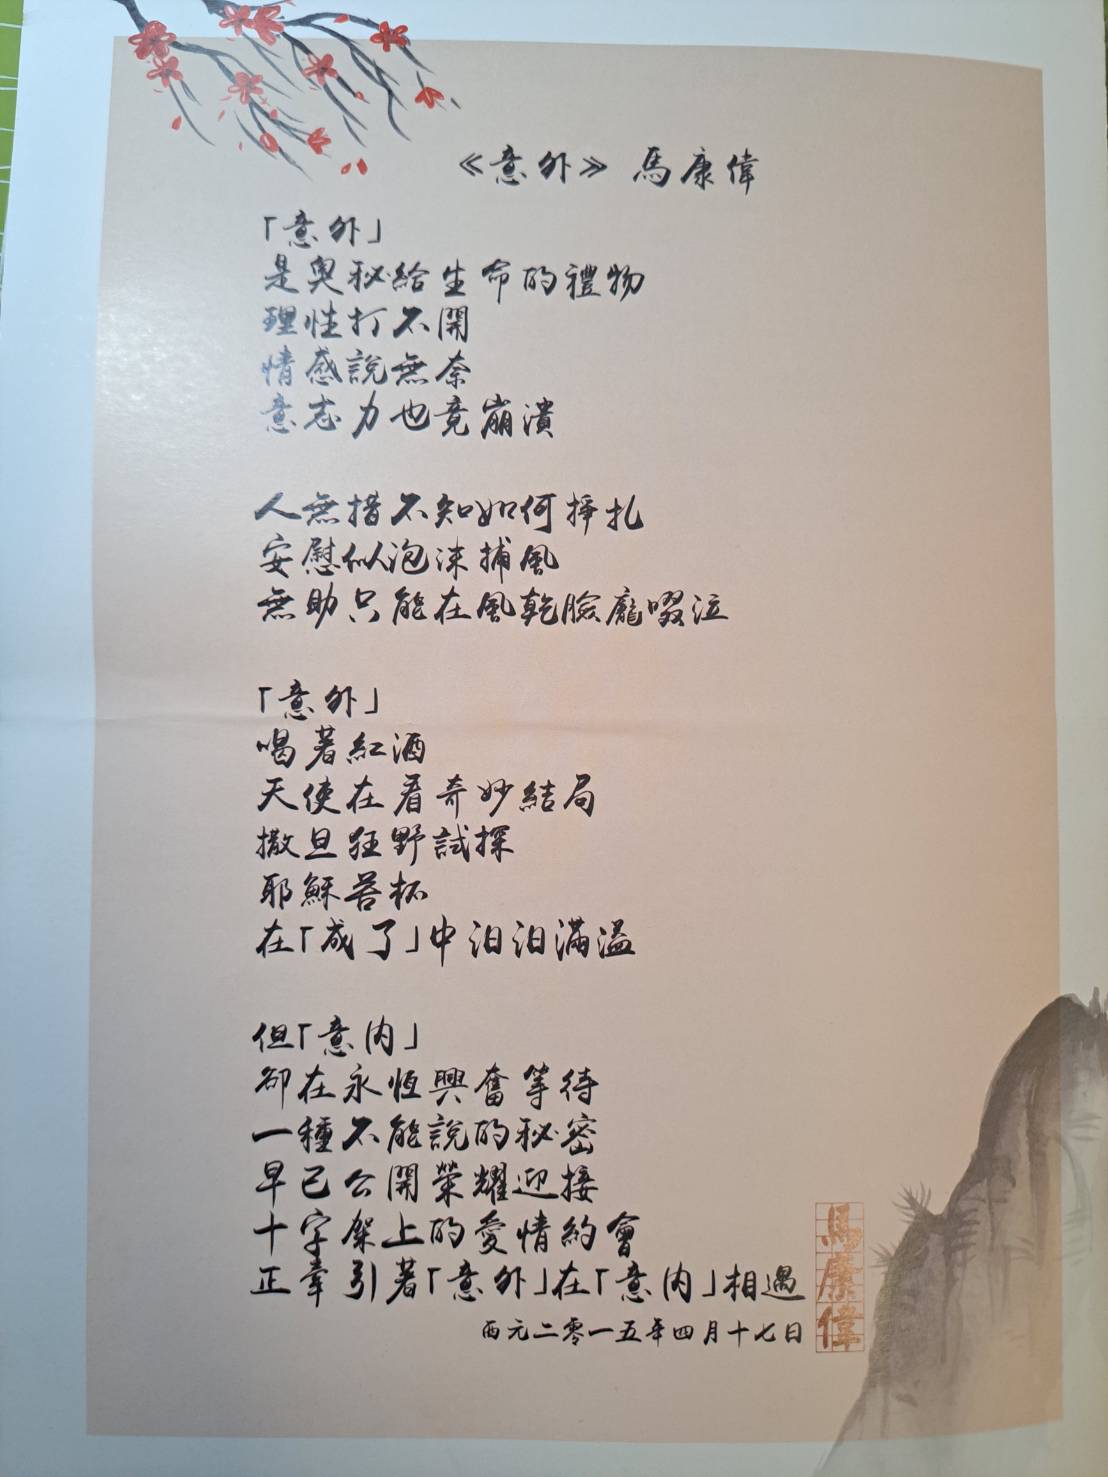 《意外》 馬康偉
「意外」
是奧秘給生命的禮物
理性打不開
情感說無奈
意志力也竟崩潰
人無措不知如何掙扎
安慰似泡沫捕風
無助只能在風乾臉龐啜泣
「意外」
喝著紅酒
天使在看奇妙結局
撒旦狂野試探
耶穌苦杯
在「成了」中汩汩滿溢
但「意內」
卻在永恆興奮等待
一種不能說的秘密
早已公開榮耀迎接
十字架上的愛情約會
正牽引著「意外」在「意內」相遇
西元二零一五年四月十七日
馬康偉